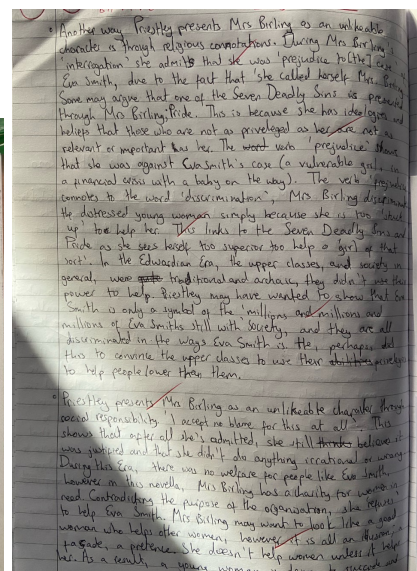 Another way Priestley presents Mrs Birling as an unlikeable
character is through religious connotations. During Mrs Birling's
'interrogation' she admits that she was 'prejudice to [the] case
Eva Smith, due to the fact that 'she called herself Mrs Birling
Some may argue that one of the Seven Deadly Sins as presented
through Mrs Birling: Pride. This is because she has ideologies and
beliefs that those who are not as priveleged as her are not as
relevant or important has her. The verb 'prejudice' shows
that she was against Eva Smith's case (a vulnerable girl, in
a financial crisis with a baby on the way). The verb 'prejudice
connotes to the word 'discrimination', Mrs Birling
the distressed young woman simply because she is too 'stuck
up' too help her. This links to the Seven Deadly Sins and
Pride as she sees herself too superior too help 'a girl of that
sort'. In the Edwardian Era, the upper classes, and society in
general, were traditional and archaic, they didn't use their
power to help. Priestley may have wanted to show that Eva
Smith is only a symbol of the 'millions and millions and
millions of Eva Smiths still with Society, and they are all
discriminated in the ways Eva Smith is the, perhaps did
this to convince the upper classes to use their
to help people lower than them.
Priestley presents Mrs Birling as an unlikeable character through
social responsibility. 'I accept no blame for this at all'. This
shows that after all she's admitted, she still believes it
was justified and that she didn't do anything irrational or wrong.
During this Era, there was no welfare for people like Eva Smith,
however in this novella, Mrs Birling has a charity for women in
need. Contradicting the purpose of the organisation, she refuses
to help Eva Smith. Mrs Birling may want to look like a good
woman she helps other women, however it is all an illusion, a
facade, a pretence. She doesn't help women unless it helps
her. As a result, a young woman